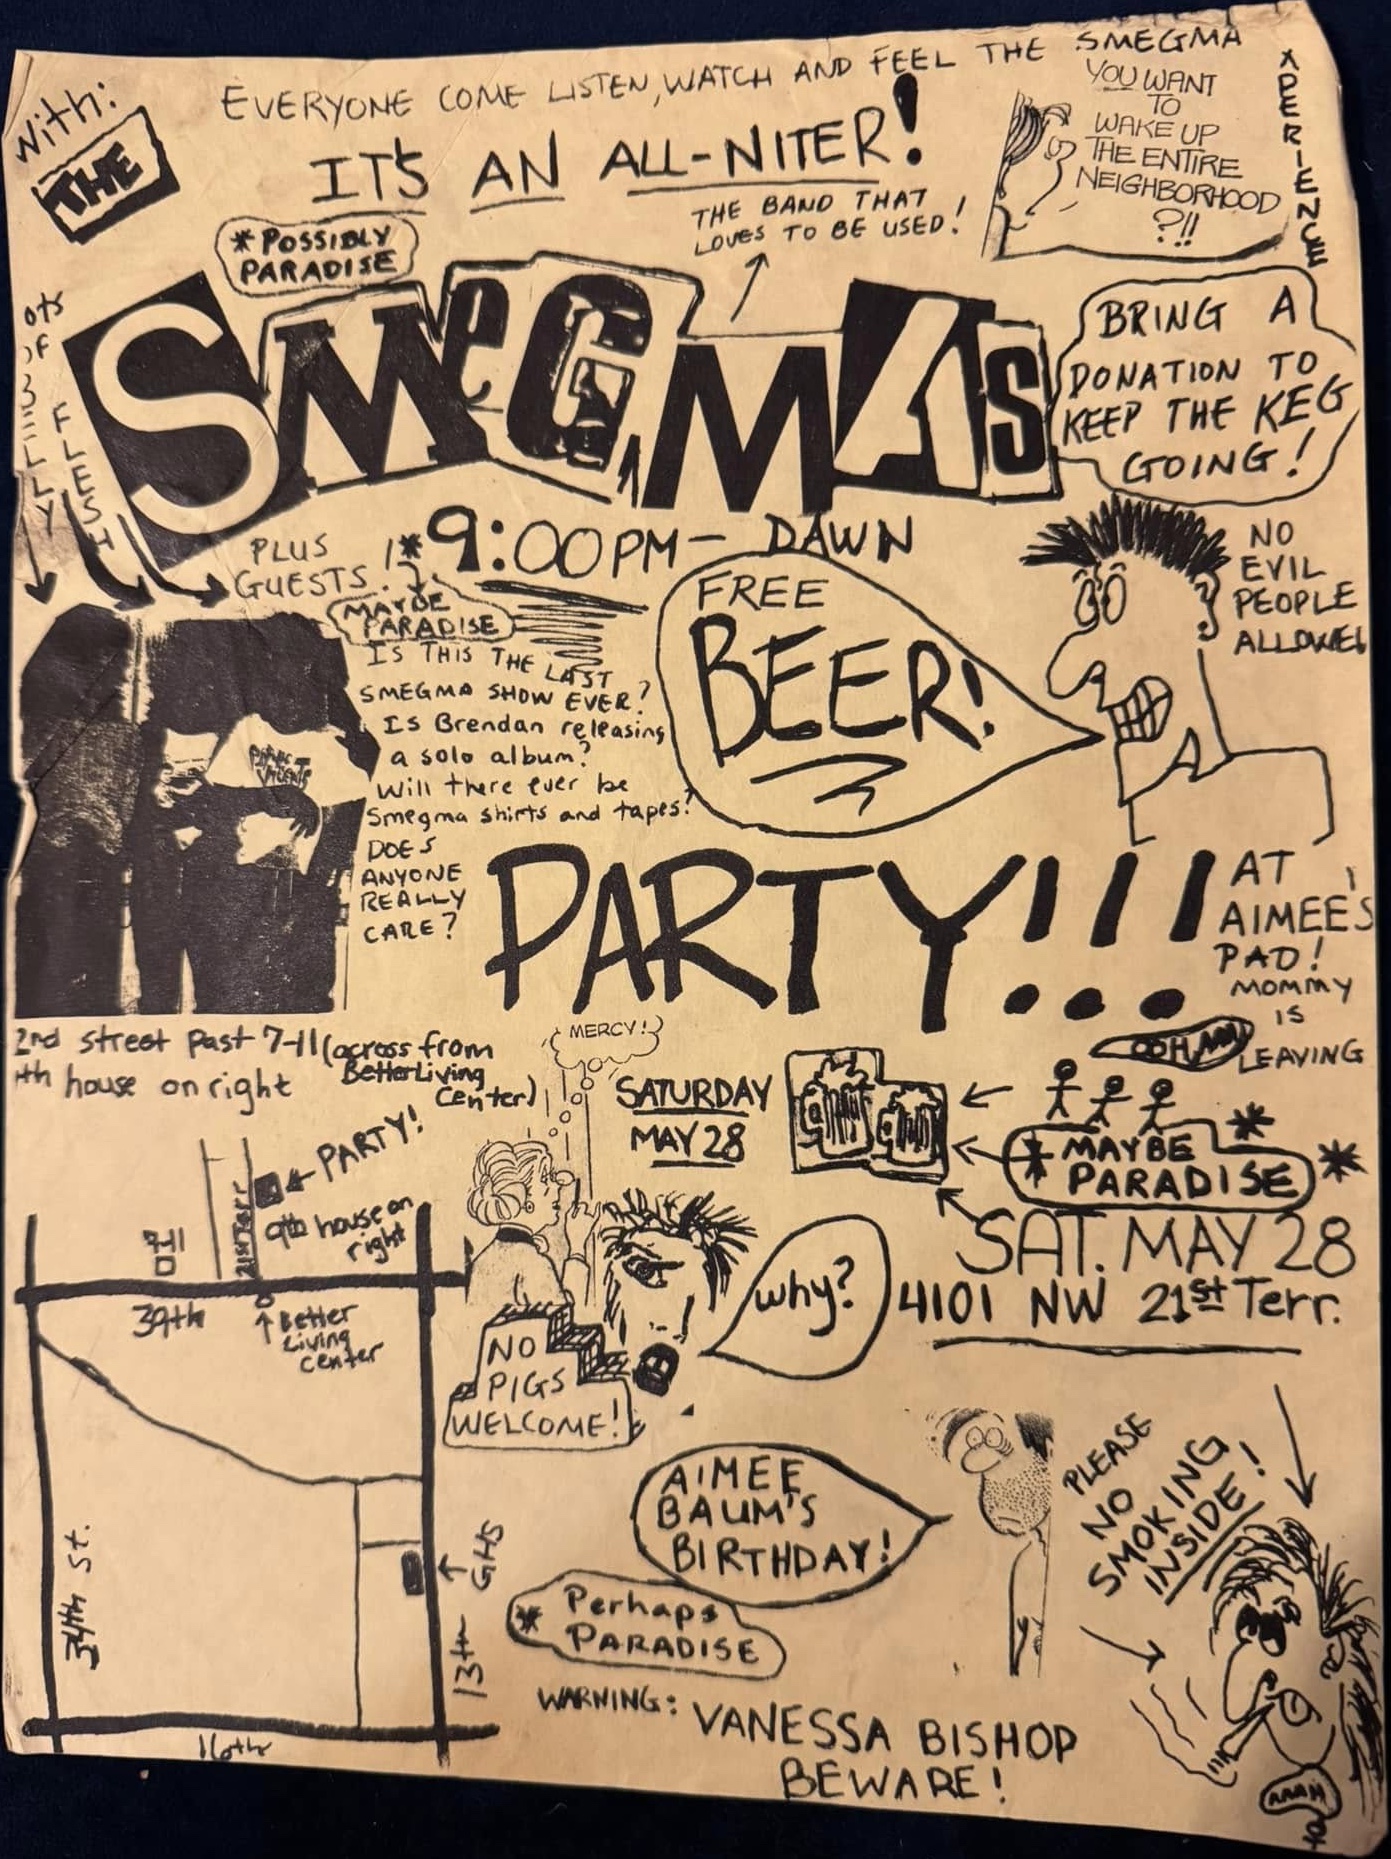 With:
THE
EVERYONE COME LISTEN, WATCH AND FEEL THE SMEGMA
XPERIENCE
IT'S AN ALL-NITER!
YOU WANT
TO
WAKE UP
THE ENTIRE
NEIGHBORHOOD
?!!
THE BAND THAT
LOVES TO BE USED!
*POSSIBLY
PARADISE
SMeGMAS
BRING A
DONATION TO
KEEP THE KEG
GOING!
OF
BELLY
FLESH
PLUS
GUESTS!*
MAYBE
PARADISE
9:00PM — DAWN
FREE
BEER!
NO
EVIL
PEOPLE
ALLOWED
IS THIS THE LAST
SMEGMA SHOW EVER?
Is Brendan releasing
a solo album?
Will there ever be
Smegma shirts and tapes?
DOES
ANYONE
REALLY
CARE?
PARTY!!!
AT
AIMEE'S
PAD!
MOMMY
IS
LEAVING
2nd street past 7-11 (across from
Better Living
Center)
th house on right
MERCY!
SATURDAY
MAY 28
*MAYBE
PARADISE
* *
SAT. MAY 28
4101 NW 21st Terr.
PARTY!
9th house on
right
21st Terr
7-11
39th
Better
Living
Center
NO
PIGS
WELCOME!
Why?
34th St.
GHS
13th
16th
AIMEE
BAUM'S
BIRTHDAY!
* Perhaps
PARADISE
PLEASE
NO
SMOKING
INSIDE!
WARNING: VANESSA BISHOP
BEWARE!
AAAH